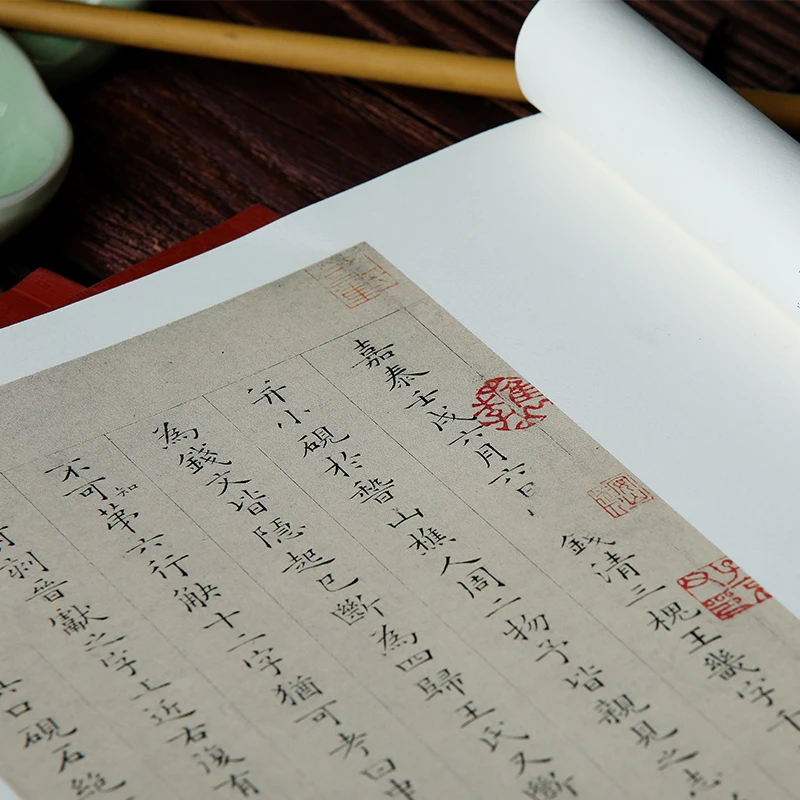 嘉泰壬戌六月六日錢清三槐王畿字千
并小硯於稽山樵人周二物予皆親見之志
為錢文皆隱起已斷為四歸王氏又斷
不可知苐六行缺十二字猶可考曰中
刻晉獻之字上近右復有
硯石絶